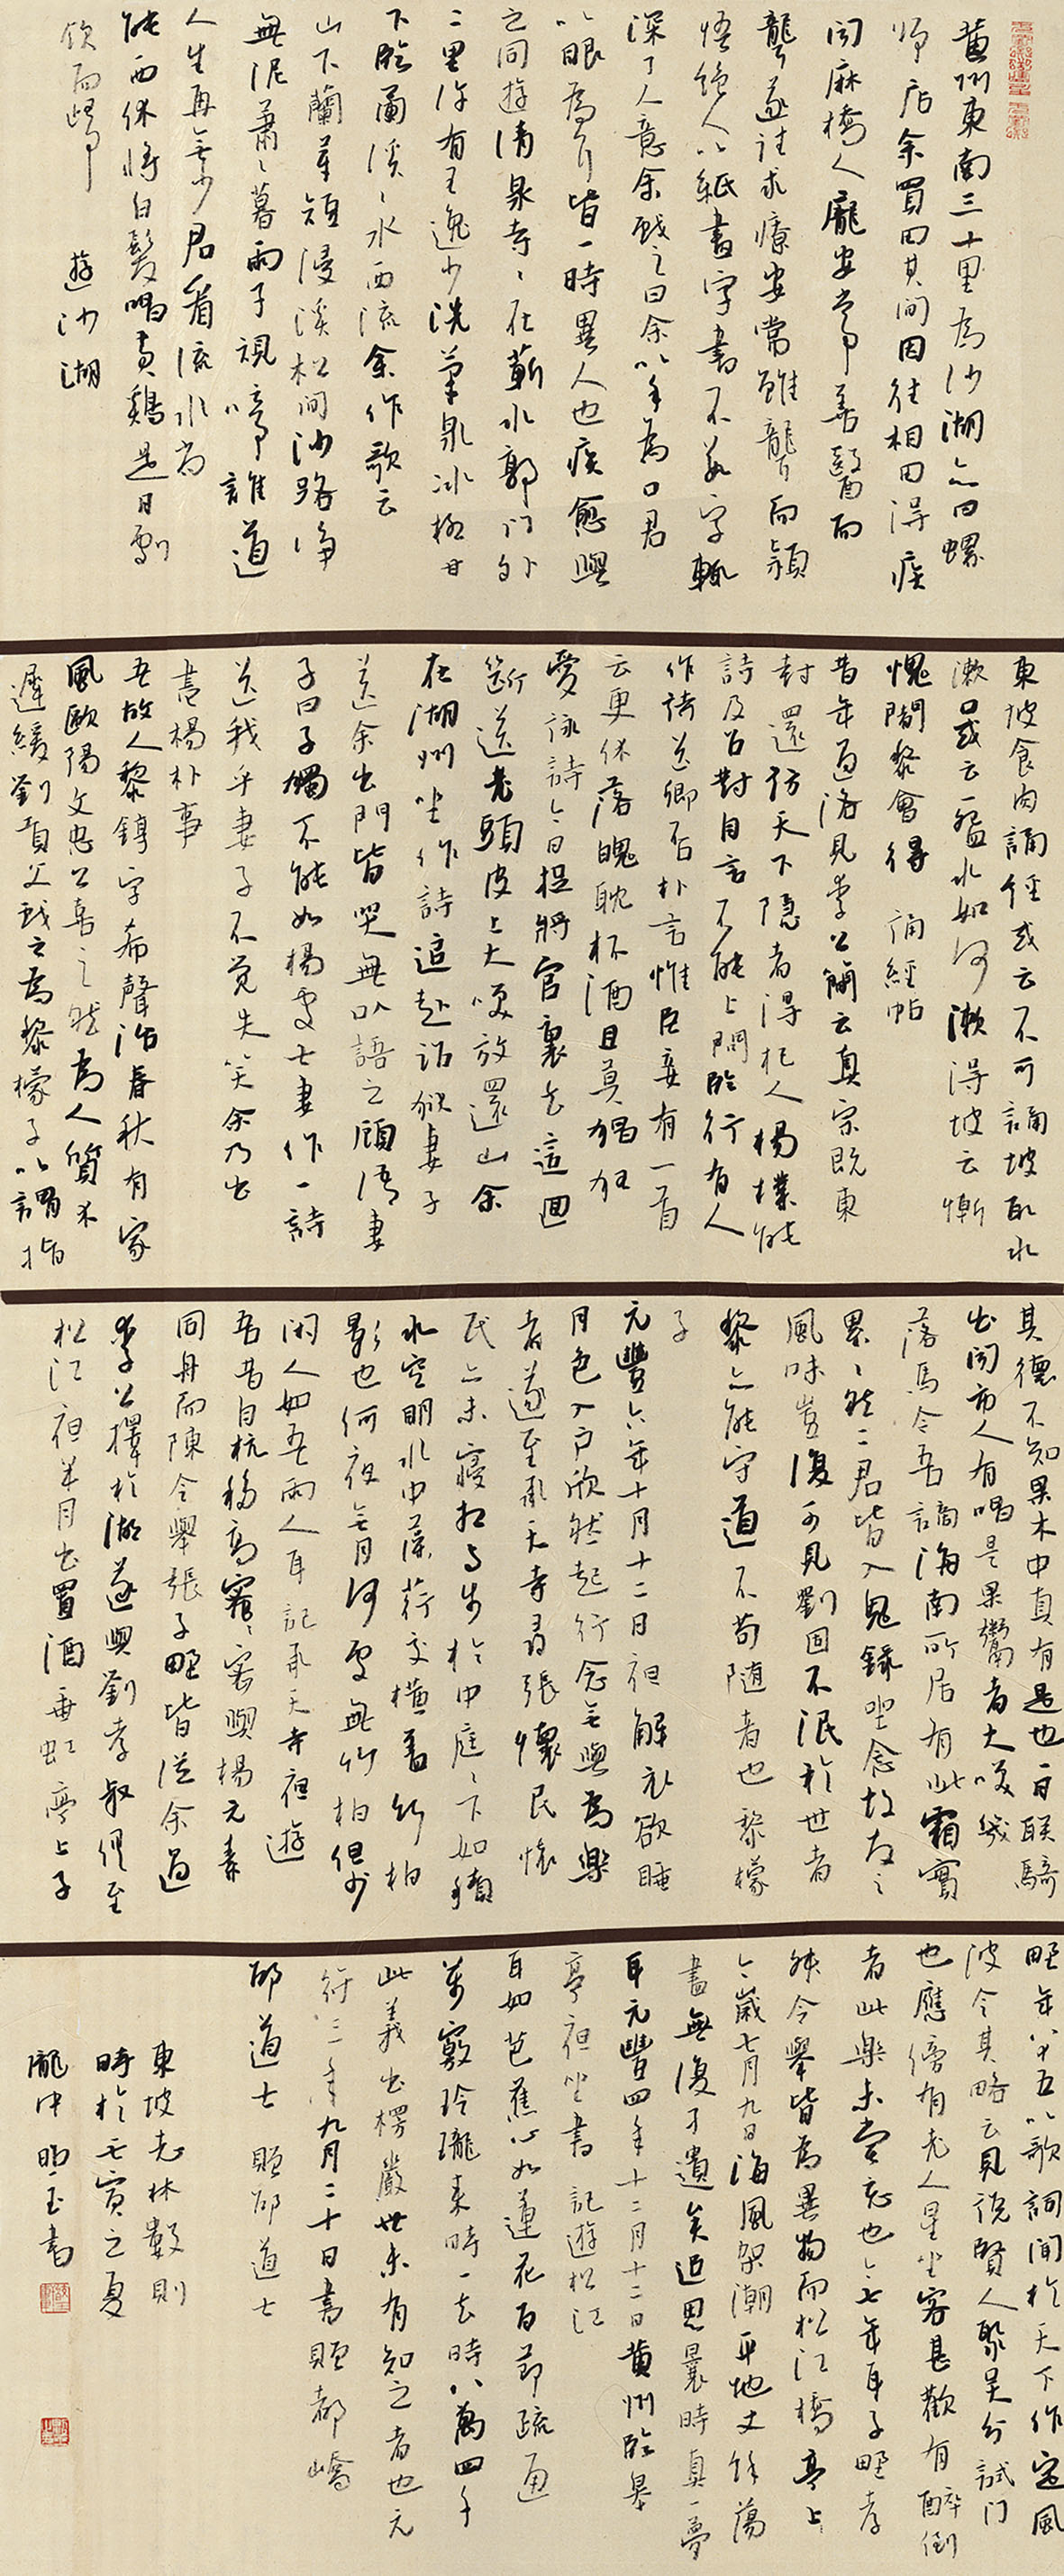 黄州東南三十里為沙湖亦曰螺
師店余買田其間因往相田得疾
聞麻橋人龐安常善醫而
聾遂往求療安常雖聾而穎
悟絶人以紙畫字書不數字輒
深了人意余戲之曰余以手為口君
以眼為耳皆一時異人也疾愈與
之同遊清泉寺寺在蘄水郭門外
二里許有王逸少洗筆泉水極甘
下臨蘭溪溪水西流余作歌云
山下蘭芽短浸溪松間沙路淨
無泥蕭蕭暮雨子規啼誰道
人生再無少君看流水尚
能西休將白髮唱黄鷄是日劇
飲而歸 遊沙湖
東坡食肉誦經或云不可誦坡取水
漱口或云一盌水如何漱得坡云慚
愧闍黎會得 誦經帖
昔年過洛見李公簡云真宗既東
封還訪天下隱者得杞人楊樸能
詩及召對自言不能上問臨行有人
作詩送卿否朴言惟臣妾有一首
云更休落魄耽杯酒且莫猖狂
愛詠詩今日捉將官裏去這回
斷送老頭皮上大笑放還山余
在湖州坐作詩追赴詔獄妻子
送余出門皆哭無以語之顧語妻
子曰子獨不能如楊處士妻作一詩
送我乎妻子不覺失笑余乃出
書楊朴事
吾故人黎錞字希聲治春秋有家
風歐陽文忠公喜之然為人質木
遲緩劉貢父戲之為黎檬子以謂指
其德不知果木中真有是也一日聯騎
出聞市人有唱是果鬻者大笑幾
落馬今吾謫海南所居有此霜實
累累然二君皆入鬼録坐念故友之
風味豈復可見劉固不泯於世者
黎亦能守道不苟随者也 黎檬
子
元豐六年十月十二日夜解衣欲睡
月色入户欣然起行念無與為樂
者遂至承天寺尋張懷民懷
民亦未寢相與步於中庭庭下如積
水空明水中藻荇交横蓋竹柏
影也何夜無月何處無竹柏但少
閑人如吾兩人耳 記承天寺夜遊
吾昔自杭移高密密與楊元素
同舟而陳令舉張子野皆從余過
李公擇於湖遂與劉孝叔俱至
松江夜半月出置酒垂虹亭上子
野年八十五以歌詞聞於天下作定風
波令其略云見説賢人聚吴分試問
也應傍有老人星坐客甚歡有醉倒
者此樂未嘗忘也今七年耳子野孝
叔令舉皆為異物而松江橋亭上
今歲七月九日海風架潮平地丈餘蕩
盡無復孑遺矣追思曩時真一夢
耳元豐四年十二月十二日黄州臨皋
亭夜坐書 記遊松江
耳如芭蕉心如蓮花百節疏通
萬竅玲瓏來時一去時八萬四千
此義出楞嚴世未有知之者也元
符三年九月二十日書贈都嶠
邵道士 贈邵道士
東坡志林數則
時於壬寅之夏
龐中明玉書